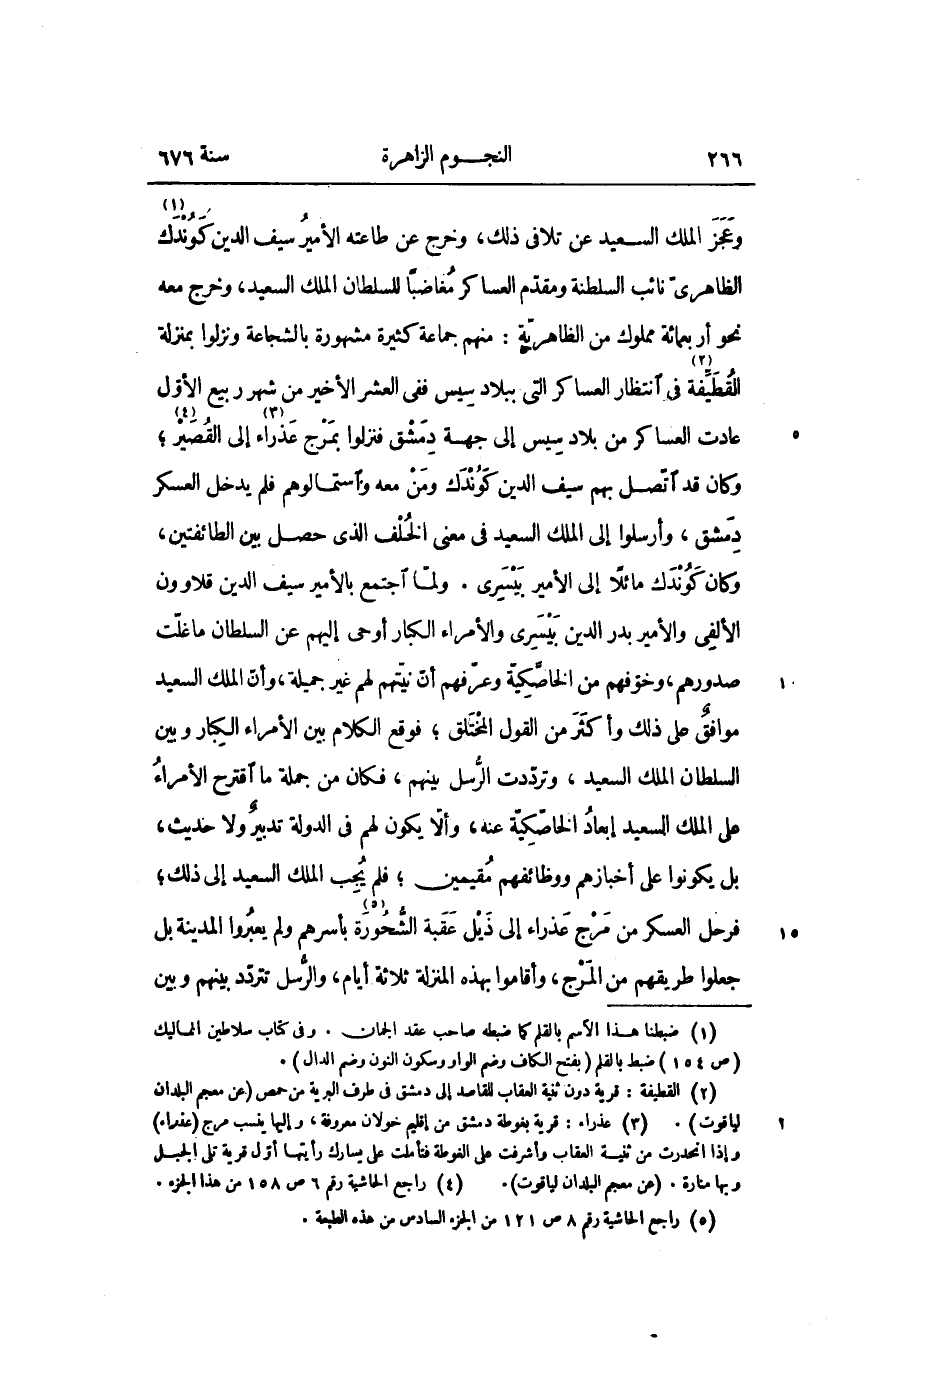 ٢٦٦ النجوم الزاهرة سنة ٦٧٦
(١)
وعَجَزَ الملك السعيد عن تلافى ذلك، وخرج عن طاعته الأميرُ سيف الدين كَوُنْدَك
الظاهرىّ نائب السلطنة ومقدّم العساكر مُغاضبًا للسلطان الملك السعيد، وخرج معه
نحو أربعمائة مملوك من الظاهريّة : منهم جماعة كثيرة مشهورة بالشجاعة ونزلوا بمنزلة
(٢)
القُطَيِّفة فى آنتظار العساكر التى ببلاد سِيس ففى العشر الأخير من شهر ربيع الأوّل
(٣) (٤)
عادت العساكر من بلاد سِيس إلى جهة دِمَشْق فنزلوا بمَرْج عَذْراء إلى القُصَيْر ؛ ٥
وكان قد آتّصل بهم سيف الدين كَوُنْدَك ومَنْ معه وآستمالوهم فلم يدخل العسكر
دِمَشق ، وأرسلوا إلى الملك السعيد فى معنى الخُلْف الذى حصل بين الطائفتين،
وكان كَوُنْدَك مائلًا إلى الأمير بَيْسَرِى . ولمّا آجتمع بالأمير سيف الدين قلاوون
الألفِى والأمير بدر الدين بَيْسَرِى والأمراء الكبار أوحى إليهم عن السلطان ما غلّت
صدورهم، وخوّفهم من الخاصَّكِيّة وعرّفهم أنّ نيّتهم لهم غير جميلة، وأنّ الملك السعيد ١٠
موافقٌ على ذلك وأكثَرَ من القول المُخْتَلق ؛ فوقع الكلام بين الأمراء الكبار وبين
السلطان الملك السعيد ، وتردّدت الرُّسل بينهم ، فكان من جملة ما آقترح الأمراءُ
على الملك السعيد إبعادُ الخاصّكِيّة عنه، وألّا يكون لهم فى الدولة تدبيرٌ ولا حديث،
بل يكونوا على أخبازهم ووظائفهم مُقيمين ؛ فلم يُجِب الملك السعيد إلى ذلك؛
(٥)
فرحل العسكر من مَرْج عَذراء إلى ذَيْل عَقَبة الشُّحُورَة بأسرهم ولم يعبُروا المدينة بل ١٥
جعلوا طريقهم من المَرْج، وأقاموا بهذه المنزلة ثلاثة أيام، والرُّسل تتردّد بينهم وبين
(١) ضبطنا هذا الأسم بالقلم كما ضبطه صاحب عقد الجمان . وفى كتاب سلاطين المماليك
(ص ١٥٤) ضبط بالقلم (بفتح الكاف وضم الواو وسكون النون وضم الدال) .
(٢) القطيفة : قرية دون ثنية العقاب للقاصد إلى دمشق فى طرف البرية من حمص (عن معجم البلدان
لياقوت) . (٣) عذراء : قرية بغوطة دمشق من إقليم خولان معروفة، وإليها ينسب مرج (عذراء) ٢
وإذا انحدرت من ثنية العقاب وأشرفت على الغوطة فتأملت على يسارك رأيتها أوّل قرية تلى الجبل
وبها منارة . (عن معجم البلدان لياقوت). (٤) راجع الحاشية رقم ٦ ص ١٥٨ من هذا الجزء .
(٥) راجع الحاشية رقم ٨ ص ١٢١ من الجزء السادس من هذه الطبعة .